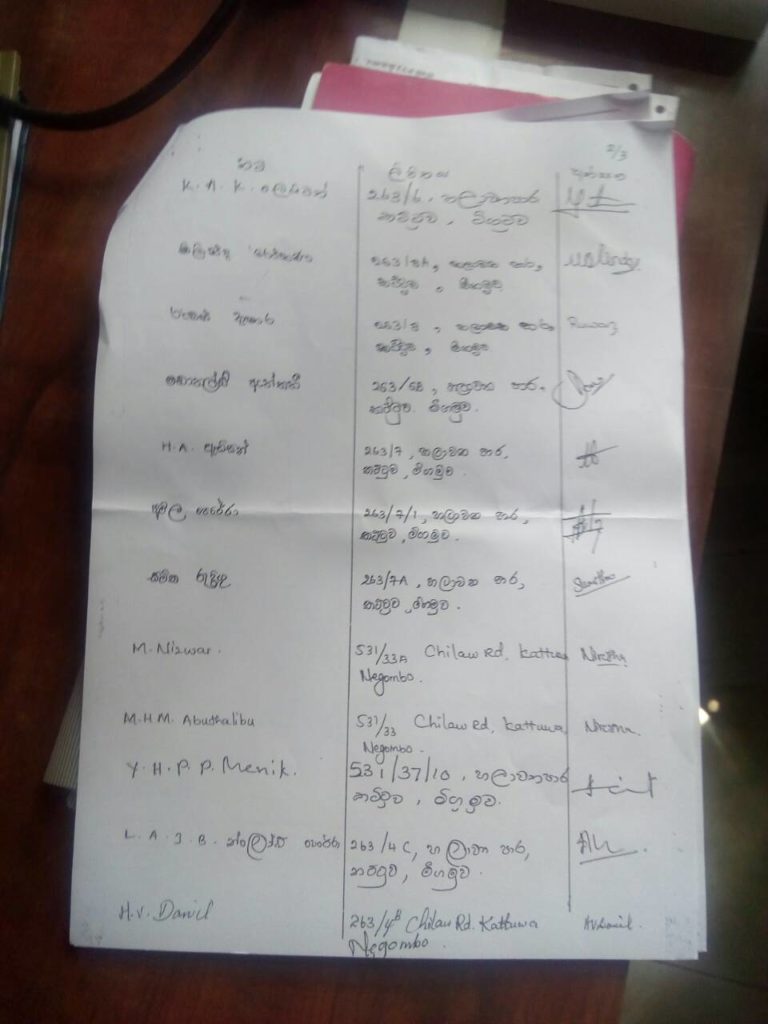 2/3
නම ලිපිනය අත්සන
K. A. K. 263/6, හලාවතපාර
කට්ටුව, මීගමුව
263/8A, හලාවත පාර,
කට්ටුව, මීගමුව
263/8, හලාවත පාර Ruwan
කට්ටුව, මීගමුව
අන්තනි 263/6B, හලාවත පාර,
කට්ටුව. මීගමුව.
H.A. 263/7, හලාවත පාර,
කට්ටුව, මීගමුව.
අමල පෙරේරා 263/7/1, හලාවත පාර,
කට්ටුව, මීගමුව.
263/7A, හලාවත පාර,
කට්ටුව, මීගමුව.
M. Nizwar. 531/33A Chilaw Rd, Kattuwa
Negombo.
M.H.M. Abuthalibu 531/33 Chilaw Rd, Kattuwa,
Negombo.
Y. H. P. P. Menik. 531/37/10, හලාවතපාර
කට්ටුව, මීගමුව.
L. A. J. B. පෙරේරා 263/4C, හලාවත පාර,
කට්ටුව, මීගමුව.
H.V. Danil 263/4B Chilaw Rd. Kattuwa HVDanil.
Negombo.